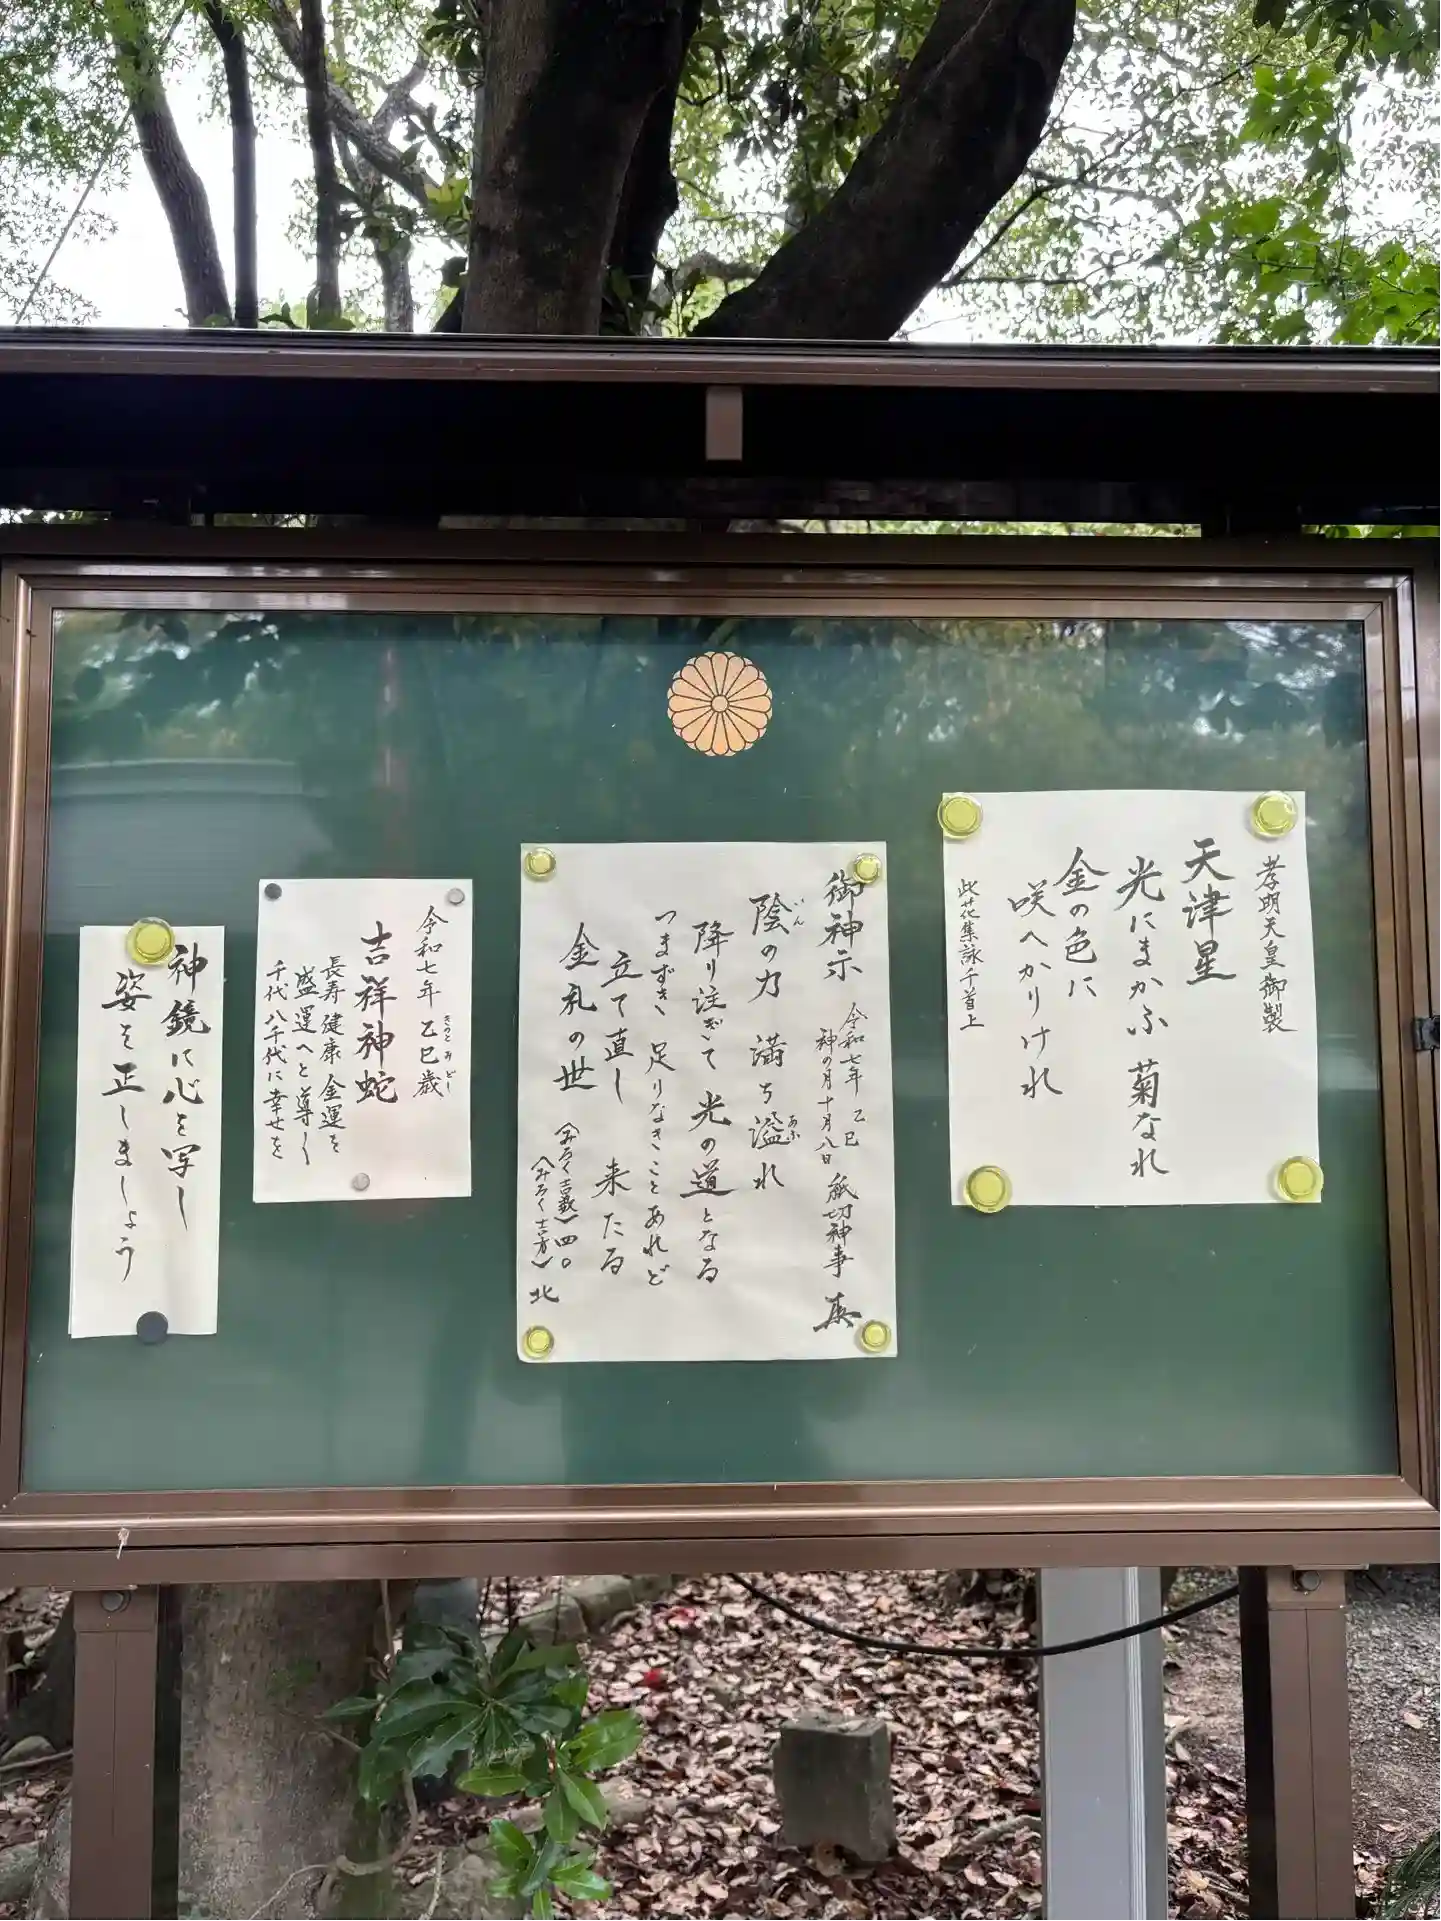 孝明天皇御製
天津星
光にまかふ 菊なれ
金の色に
咲へかりけれ
此花集詠千首上
御神示 令和七年 乙巳
神の月十月八日 紙切神事 真
陰の力 満ち溢れ
いん
あふ
降り注ぎて 光の道となる
つまずき 足りなきことあれど
立て直し 来たる
金礼の世
(みろく吉数)四〇
(みろく吉方)北
令和七年 乙巳歳
きのと みどし
吉祥神蛇
長寿健康 金運を
盛運へと導し
千代八千代に幸せを
神鏡に心を写し
姿を正しましょう